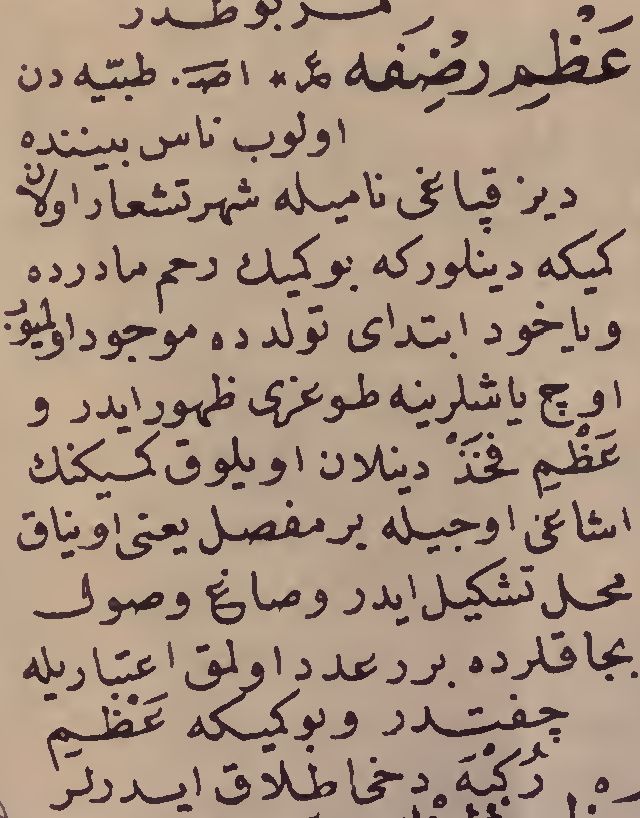 مربوطدر
عَظْمِ رضُفِه ع * اصـ. طبيّه دن
اولوب ناس بيننده
ديز قپاغى ناميله شهرتشعار اولان
كميكه دينلور كه بو كميك رحم مادرده
و ياخود ابتداى تولد ده موجود اولميوب
اوچ ياشلرينه طوغرى ظهور ايدر و
عَظْمِ فَخَذْ دينلان اويلوق كميكنك
اشاغى اوجيله بر مفصل يعنى اويناق
محل تشكيل ايدر و صاغ و صول
بجاقلرده برر عدد اولمق اعتباريله
چفتدر و بو كميكه عَظْمِ
رُكْبَه دخى اطلاق ايدرلر